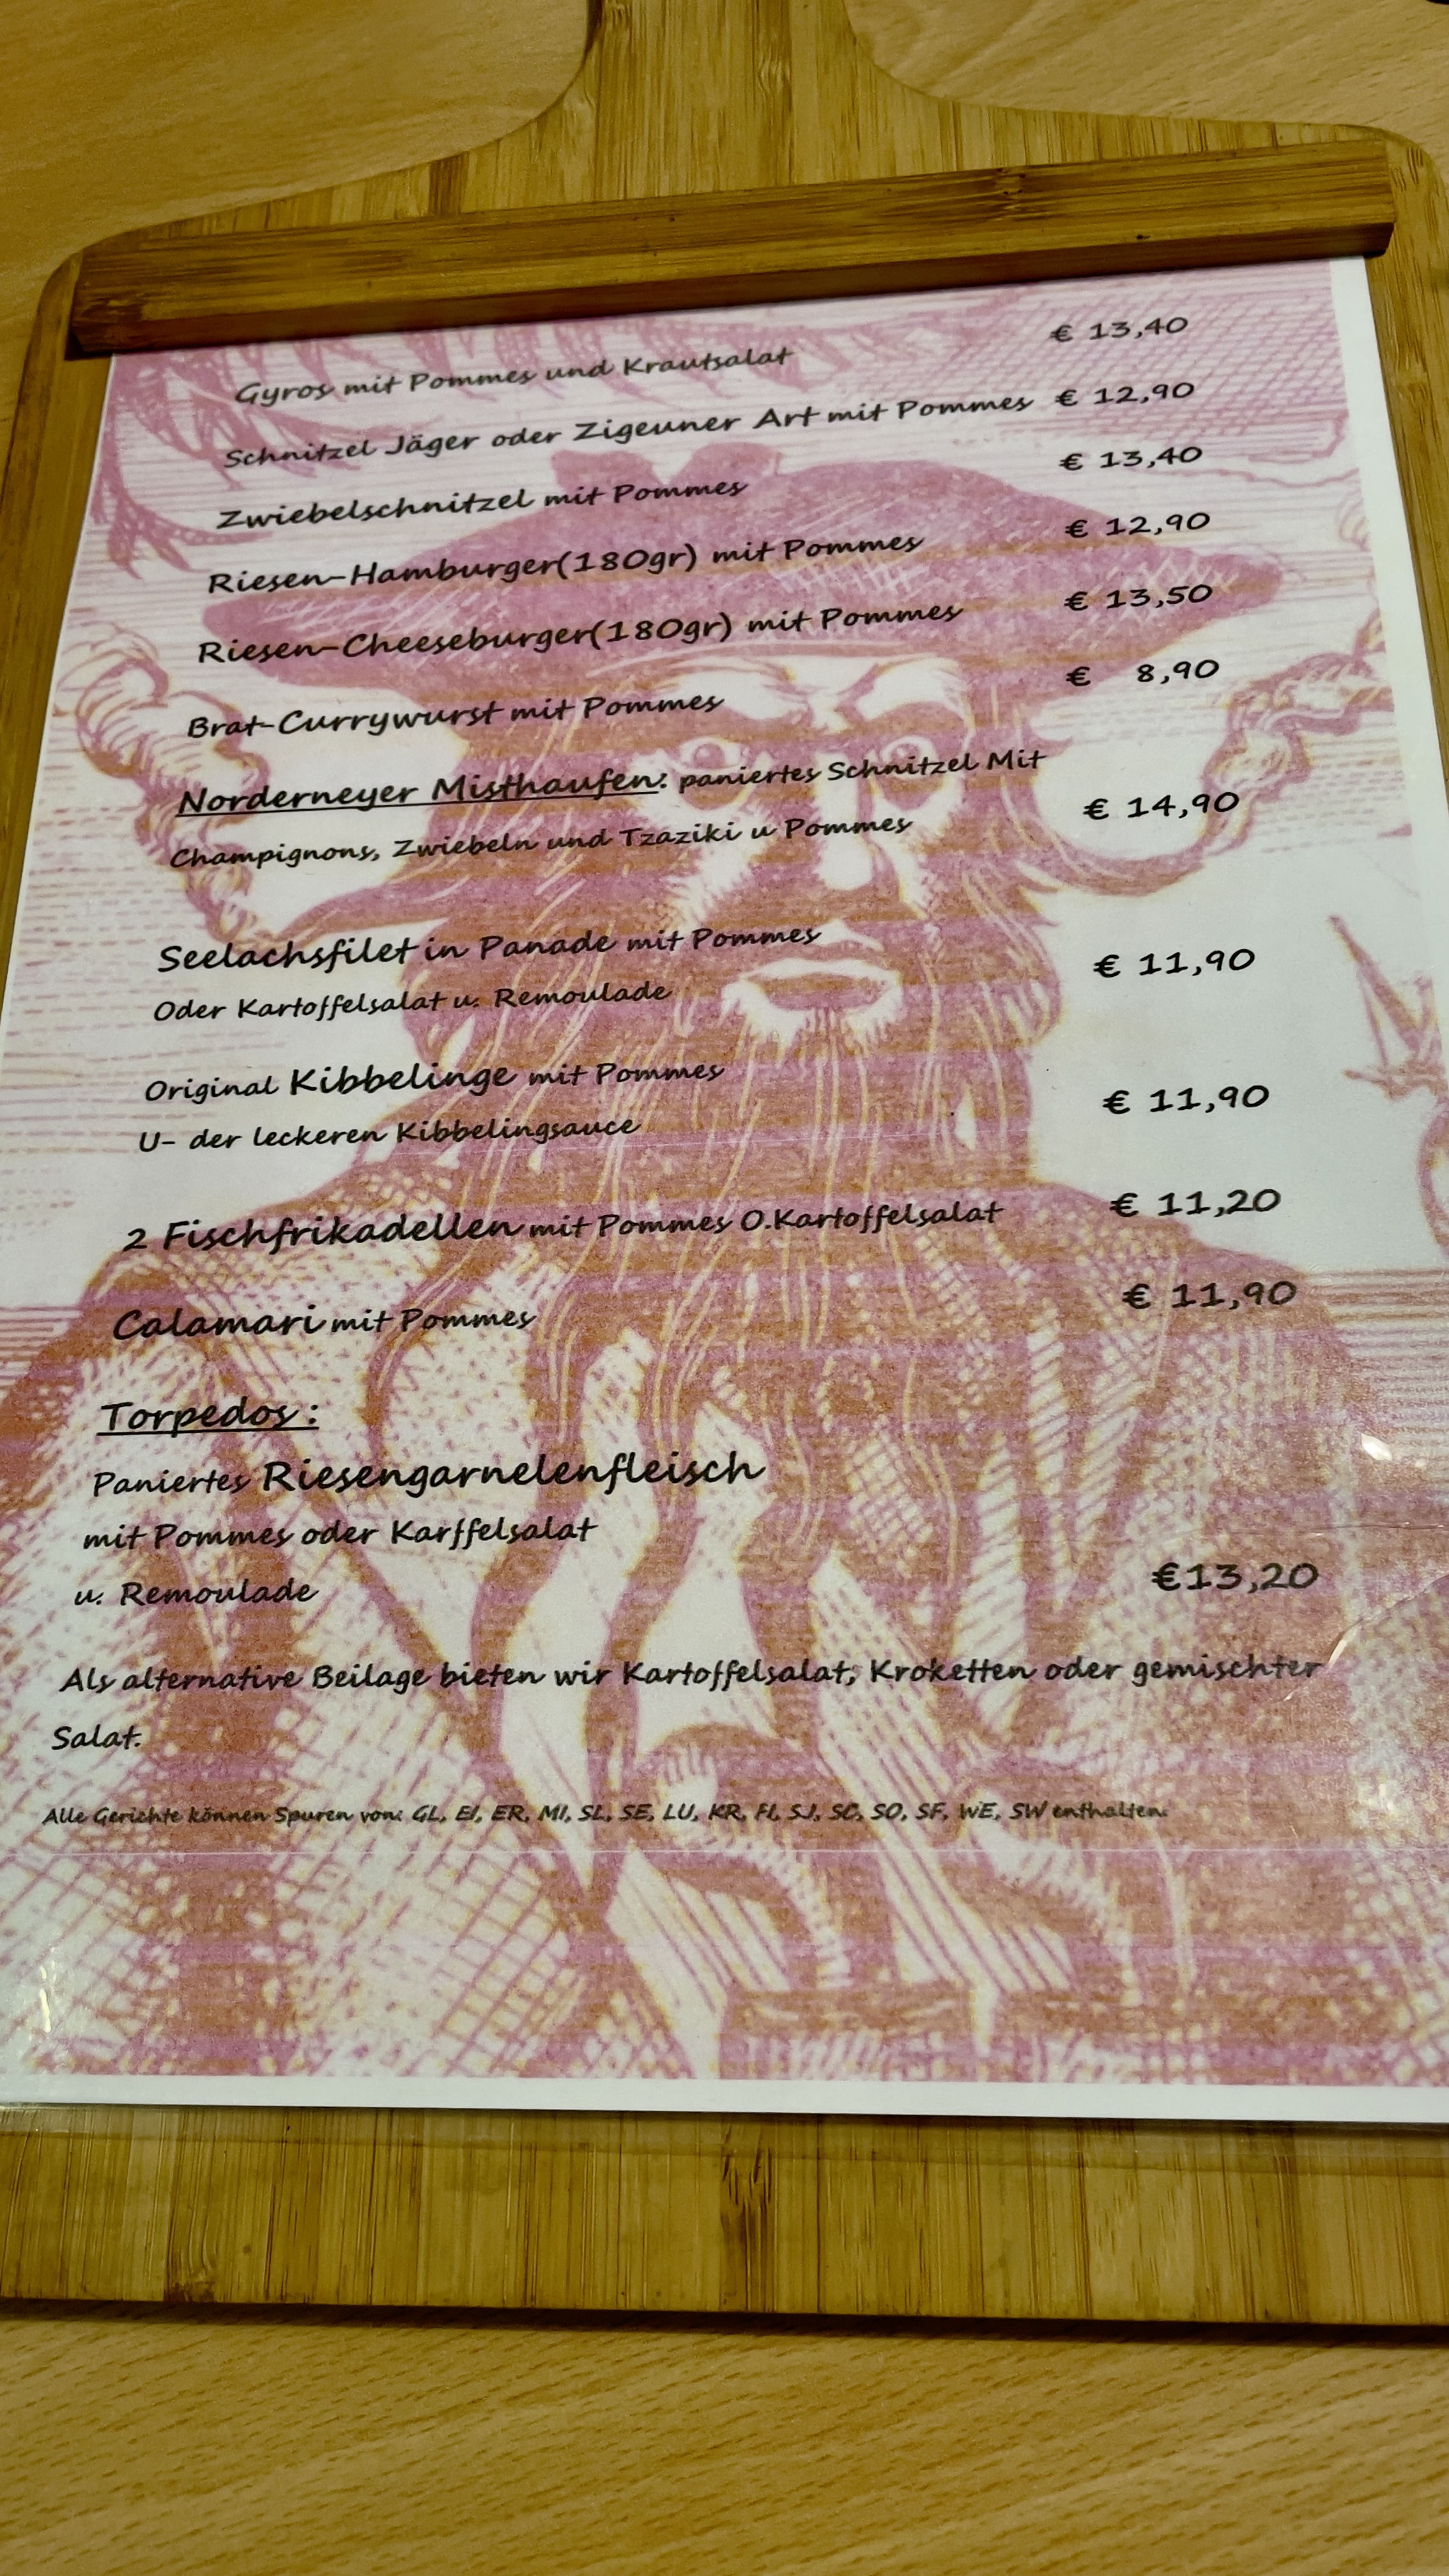 Gyros mit Pommes und Krautsalat € 13,40
Schnitzel Jäger oder Zigeuner Art mit Pommes € 12,90
Zwiebelschnitzel mit Pommes € 13,40
Riesen-Hamburger(180gr) mit Pommes € 12,90
Riesen-Cheeseburger(180gr) mit Pommes € 13,50
Brat-Currywurst mit Pommes € 8,90
Norderneyer Misthaufen: paniertes Schnitzel Mit
Champignons, Zwiebeln und Tzaziki u Pommes € 14,90
Seelachsfilet in Panade mit Pommes
Oder Kartoffelsalat u. Remoulade € 11,90
Original Kibbelinge mit Pommes
U- der leckeren Kibbelingsauce € 11,90
2 Fischfrikadellen mit Pommes O.Kartoffelsalat € 11,20
Calamari mit Pommes € 11,90
Torpedos :
Paniertes Riesengarnelenfleisch
mit Pommes oder Karffelsalat
u. Remoulade €13,20
Als alternative Beilage bieten wir Kartoffelsalat, Kroketten oder gemischter
Salat.
Alle Gerichte können Spuren von: GL, EI, ER, MI, SL, SE, LU, KR, FI, SJ, SC, SO, SF, WE, SW enthalten.